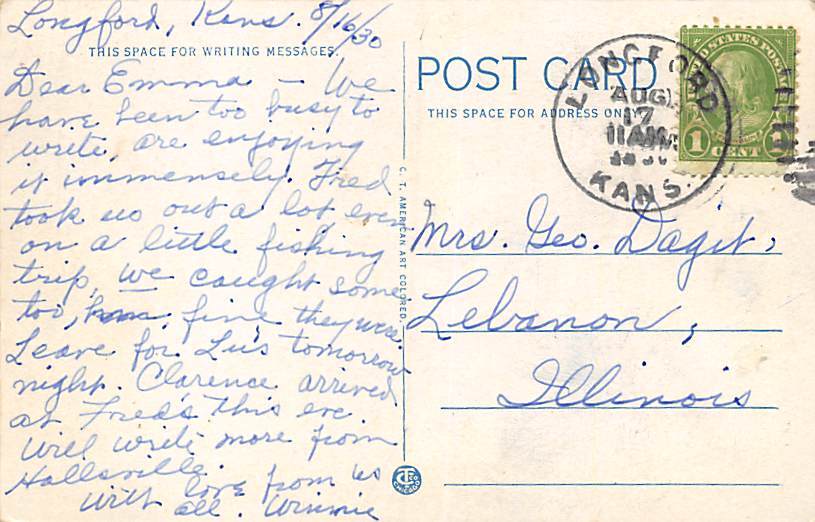 Longford, Kans. 8/16/30
THIS SPACE FOR WRITING MESSAGES.
Dear Emma — We
have been too busy to
write, are enjoying
it immensely. Fred
took us out a lot even
on a little fishing
trip, we caught some
too, fine they were.
Leave for Lu's tomorrow
night. Clarence arrived
at Fred's this eve.
Will write more from
Hallsville.
With love from us
all. Winnie
C. T. AMERICAN ART COLORED
POST CARD
THIS SPACE FOR ADDRESS ONLY
LONGFORD
AUG
17
11 AM
KANS.
UNITED STATES POSTAGE
1 CENT
Mrs. Geo. Dagit,
Lebanon,
Illinois